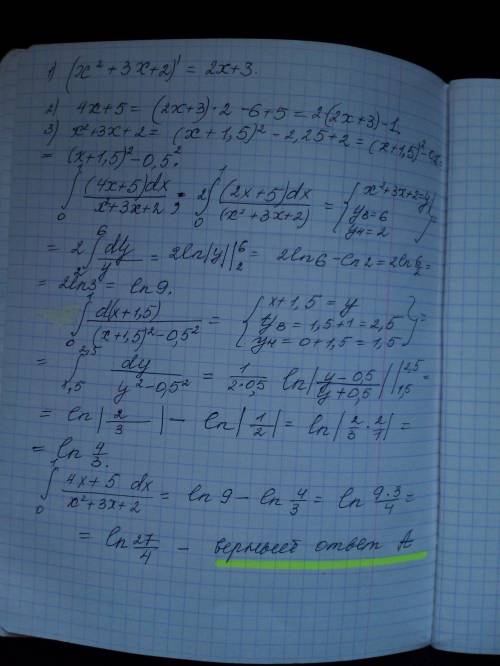 1) (x² + 3x + 2)' = 2x + 3.
2) 4x + 5 = (2x + 3) · 2 - 6 + 5 = 2(2x + 3) - 1.
3) x² + 3x + 2 = (x + 1,5)² - 2,25 + 2 = (x + 1,5)² -
= (x + 1,5)² - 0,5².
∫₀¹ (4x + 5)dx / x² + 3x + 2 ; 2∫₀¹ (2x + 5)dx / (x² + 3x + 2) = { x² + 3x + 2 = y
yв = 6
yн = 2 } =
= 2 ∫₂⁶ dy / y = 2 ln|y| |₂⁶ = 2ln6 - ln2 = 2ln 6/2 =
= 2ln3 = ln9.
∫₀¹ d(x + 1,5) / (x + 1,5)² - 0,5² = { x + 1,5 = y
yв = 1,5 + 1 = 2,5
yн = 0 + 1,5 = 1,5 } =
= ∫₁,₅²,⁵ dy / y² - 0,5² = 1 / 2·0,5 ln| y - 0,5 / y + 0,5 | |₁,₅²,⁵ =
= ln| 2/3 | - ln| 1/2 | = ln| 2/3 · 2/1 | =
= ln 4/3.
∫₀¹ 4x + 5 dx / x² + 3x + 2 = ln9 - ln 4/3 = ln 9·3/4 =
= ln 27/4 - верный ответ А